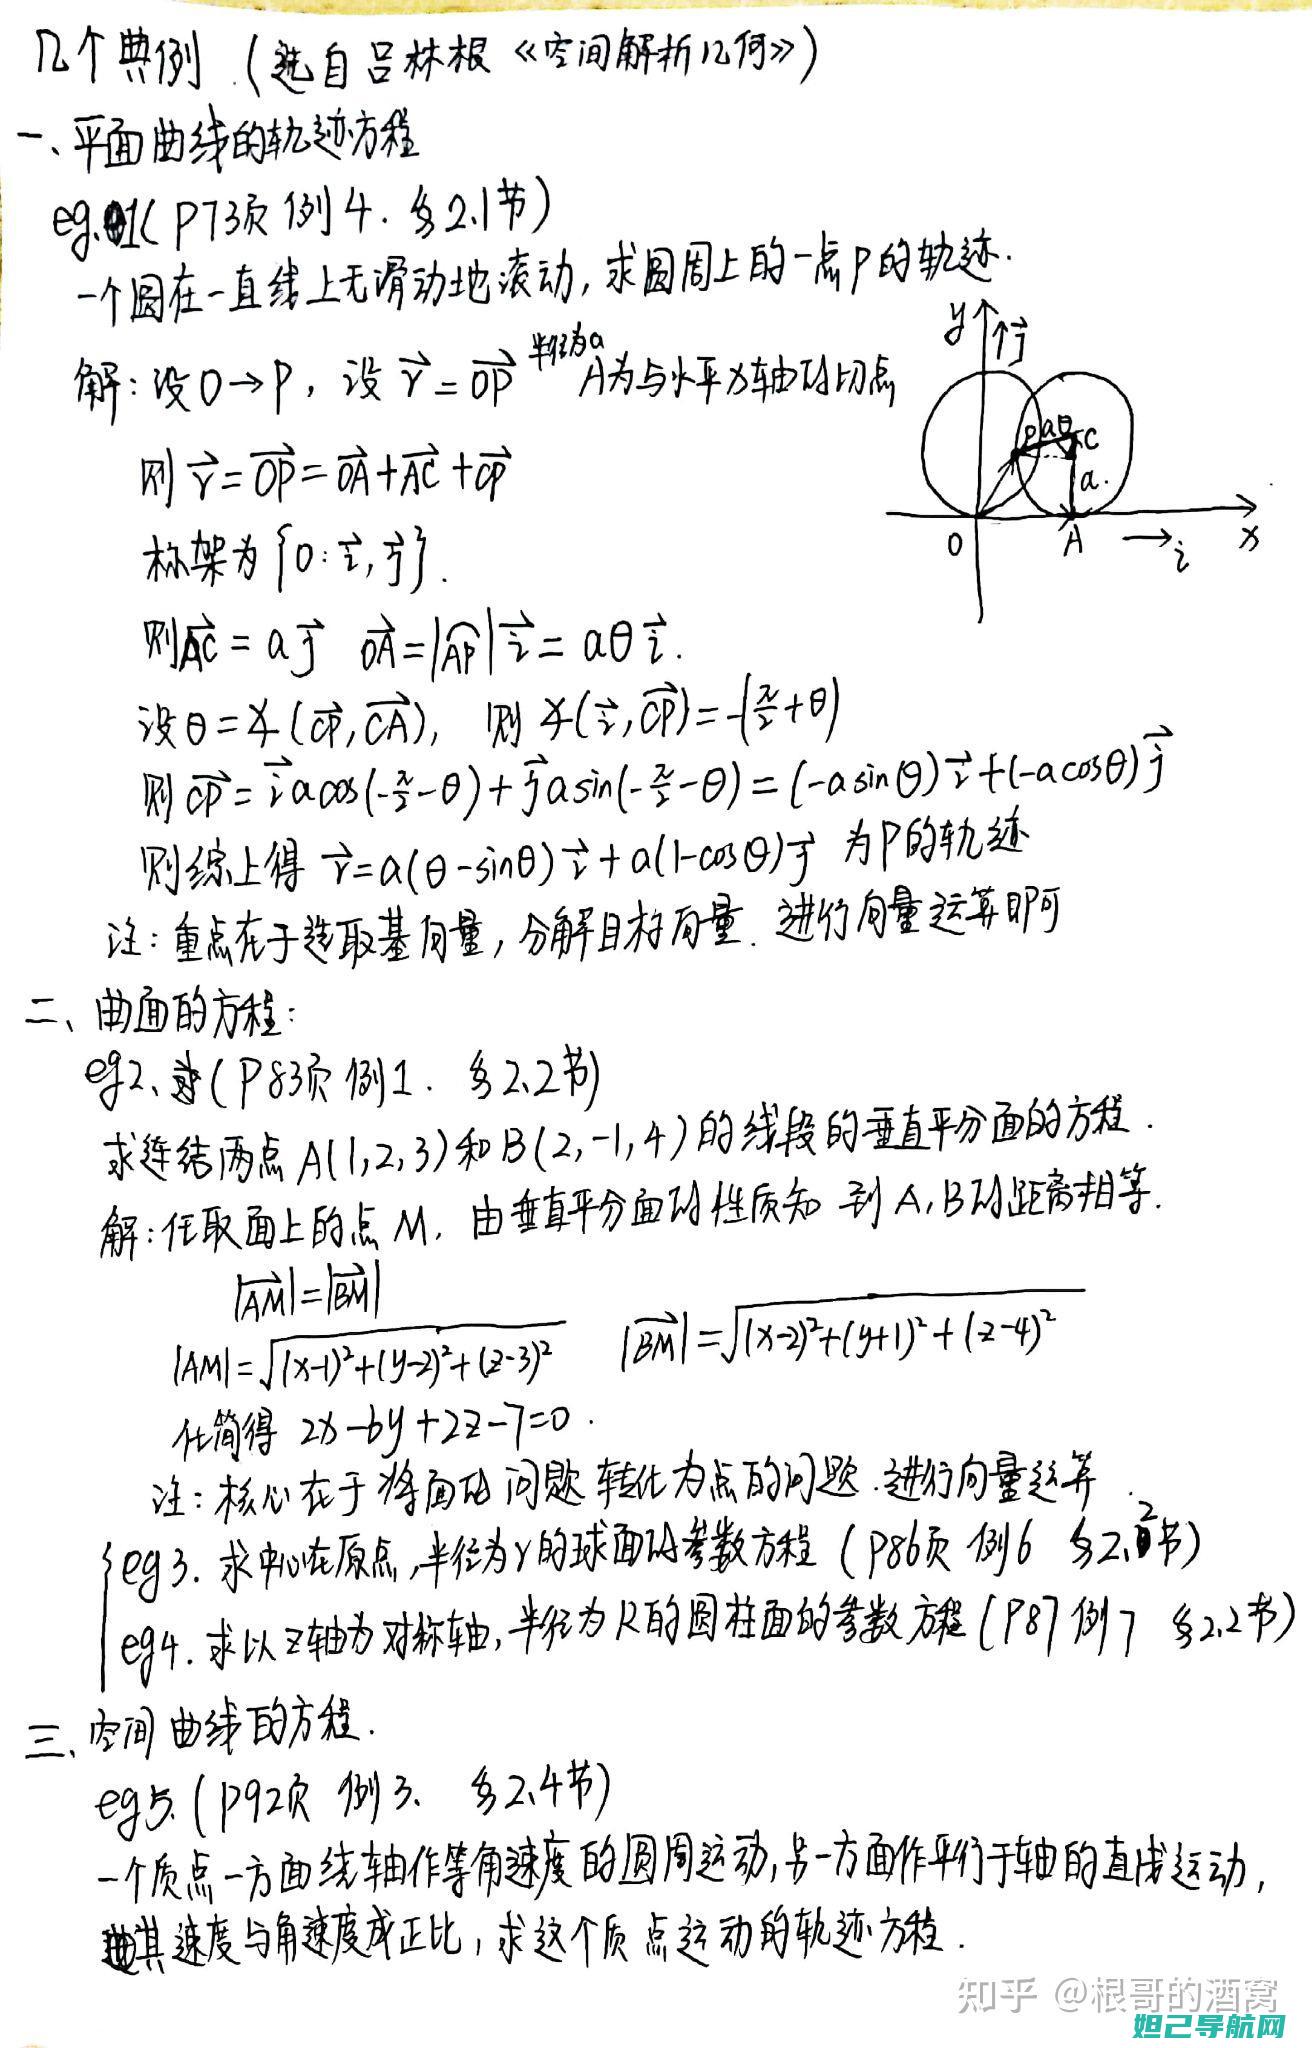 几个典例.(选自吕林根《空间解析几何》)
一、平面曲线的轨迹方程
eg.1(P73页 例4. §2.1节)
一个圆在一直线上无滑动地滚动,求圆周上的一点P的轨迹.
解:设O→P,设 r⃗=OP⃗ 半径为a A为与水平x轴的切点
y j⃗ P aθ C a. O A i x
则 r⃗=OP⃗=OA⃗+AC⃗+CP⃗
标架为{O:i⃗,j⃗}.
则AC⃗=aj⃗ OA⃗=|AP⌒|i⃗=aθi⃗.
设θ=∡(CP⃗,CA⃗), 则∡(i⃗,CP⃗)=-(π/2+θ)
则CP⃗=i⃗acos(-π/2-θ)+j⃗asin(-π/2-θ)=(-asinθ)i⃗+(-acosθ)j⃗
则综上得 r⃗=a(θ-sinθ)i⃗+a(1-cosθ)j⃗ 为P的轨迹
注:重点在于选取基向量,分解目标向量.进行向量运算即可
二、曲面的方程:
eg2、(P83页 例1. §2.2节)
求连结两点A(1,2,3)和B(2,-1,4)的线段的垂直平分面的方程.
解:任取面上的点M,由垂直平分面的性质知 到A,B的距离相等.
|AM⃗|=|BM⃗|
|AM|=√((x-1)²+(y-2)²+(z-3)²) |BM⃗|=√((x-2)²+(y+1)²+(z-4)²)
化简得 2x-6y+2z-7=0.
注:核心在于将面的问题转化为点的问题.进行向量运算.
eg3.求中心在原点,半径为r的球面的参数方程(P86页 例6 §2.2节)
eg4.求以z轴为对称轴,半径为R的圆柱面的参数方程(P87例7 §2.2节)
三、空间曲线的方程.
eg5.(P92页 例3、 §2.4节)
一个质点一方面绕轴作等角速度的圆周运动,另一方面作平行于轴的直线运动,
其速度与角速度成正比,求这个质点运动的轨迹方程.
知乎 @根哥的酒窝
妲己导航网